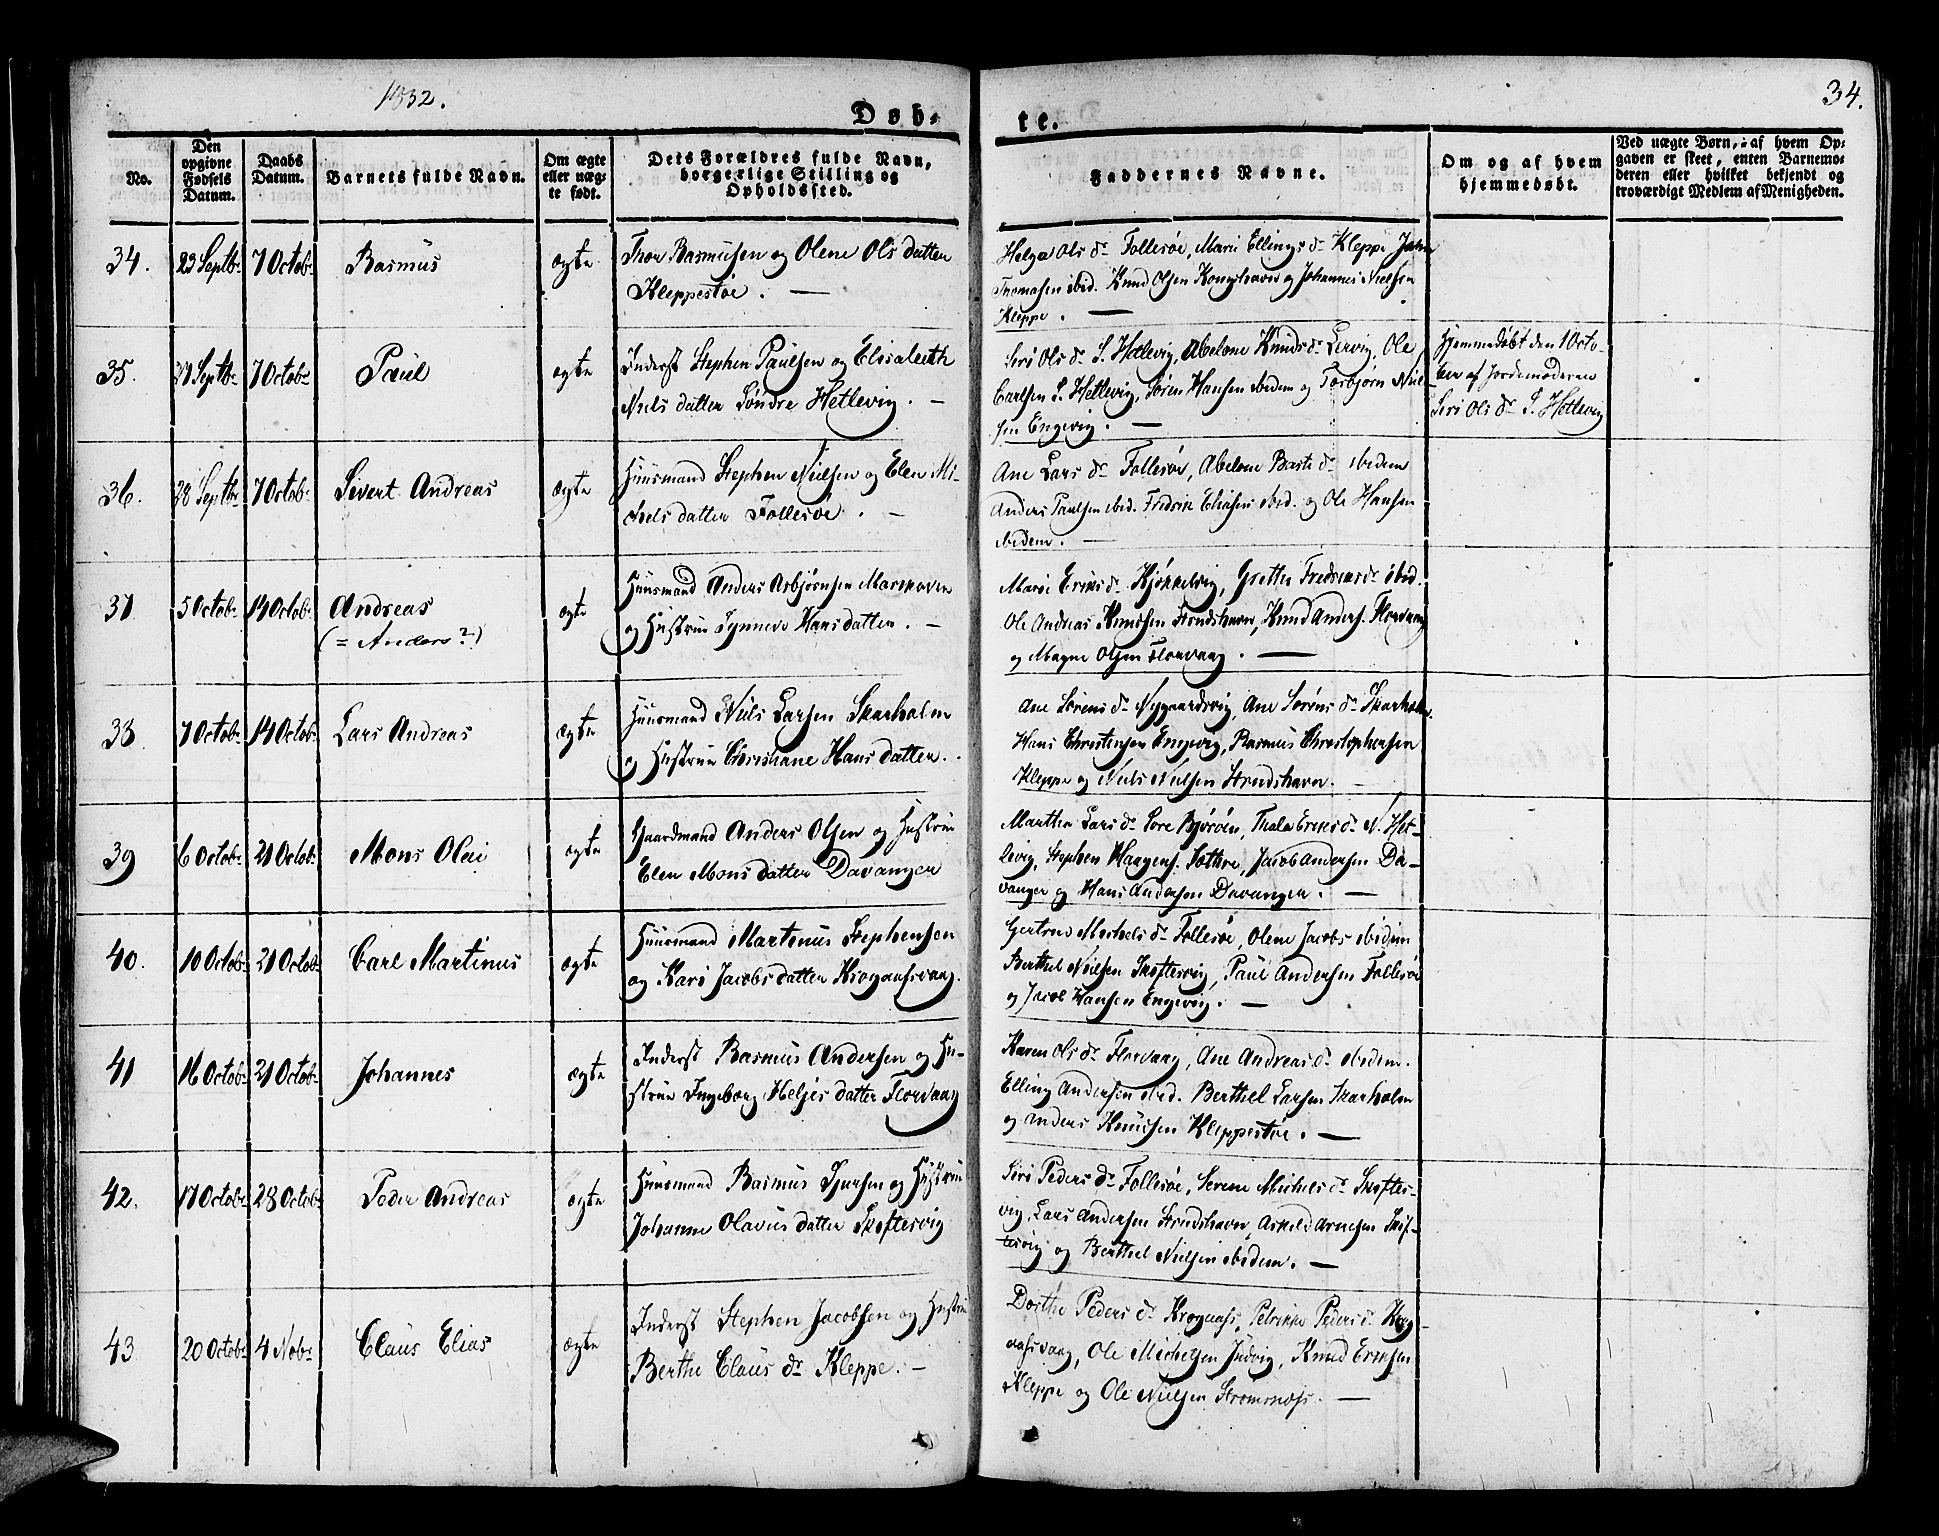 1832.
34.
Døb-
te.
No.
Den opgivne Fødsels Datum.
Daabs Datum.
Barnets fulde Navn.
Om ægte eller uægte født.
Dets Forældres fulde Navn, borgerlige Stilling og Opholdssted.
Faddernes Navne.
Om og af hvem hjemmedøbt.
Ved uægte Børn, af hvem Op-
gaven er skeet, enten Barnemo-
deren eller hvilket bekjendt og
troværdigt Medlem af Menigheden.
34. 23 Septbr 7 Octobr Rasmus ægte
Thor Rasmussen og Olene Ols datter
Kleppestøe. —
Helga Ols dr Follesøe, Mari Ellings dr Kleppe
Thomasen ibid. Knud Olsen Kongshavn og Johannes Nielsen
Kleppe. —
35. 29 Septbr 7 Octobr Paul ægte
Inderst Stephen Paulsen og Elisabeth
Niels datter Søndre Hetlevig. —
Siri Ols dr S. Hetlevig, Abelone Knuds dr Lervig, Ole
Carlsen S. Hetlevig, Søren Hansen ibidem og Torbjørn Niel-
sen Engevig. —
Hjemmedøbt den 1 Octo-
ber af Jordemoderen
Siri Ols dr S. Hetlevig
36. 28 Septbr 7 Octobr Sivert Andreas ægte
Huusmand Stephen Nielsen og Elen Mi-
chels datter Follesøe. —
Ane Lars dr Follesøe, Abelone dr ibidem
Anders Paulsen ibid. Fredrik Eliasen ibid. og Ole Hansen
ibidem. —
37 5 Octobr 14 Octobr Andreas ægte
(= Anders?)
Huusmand Anders Asbjørnsen Marihaven
og Hustrue Synneve Hans datter. —
Mari Eriks dr Kjøkkelvig, Grethe Fredriks dr ibid.
Ole Andreas Knudsen Strudshavn, Knud Anders. Florvaag
og Magne Olsen Florvaag. —
38. 7 Octobr 14 Octobr Lars Andreas ægte
Huusmand Niels Larsen Skarholm
og Hustrue Christiane Hans datter.
Ane Sørens dr Nygaardsvig, Ane Sørens dr Skarholm.
Hans Christensen Engevig, Rasmus Christophersen
Kleppe og Niels Nielsen Strudshavn. —
39 6 Octobr 21 Octobr Mons Olai ægte
Gaardmand Anders Olsen og Hustrue
Elen Mons datter Davanger
Marthe Lars dr Store Bjørøen, Thala Eriks dr N. Het-
levig, Stephen Haagens. Sothre, Jacob Andersen Da-
vanger og Hans Andersen Davanger. —
40. 10 Octobr 21 Octobr Carl Martinus ægte
Huusmand Martinus Stephensen
og Kari Jacobs datter Krogaasvaag.
Gertrud Michels dr Follesøe, Olene Jacobs ibidem
Berthel Nielsen Skoftesvig, Paul Andersen Follesøe
og Jacob Hansen Engevig. —
41 16 Octobr 21 Octobr Johannes ægte
Inderst Rasmus Andersen og Hu-
strue Ingeborg Heljes datter Florvaag
Karen Ols dr Florvaag, Ane Andreas dr ibidem.
Elling Andersen ibid. Berthel Larsen Skarholm
og Anders Knudsen Kleppestøe. —
42. 17 Octobr 28 Octobr Peder Andreas ægte
Huusmand Rasmus Sjursen og Hustrue
Johanne Olavus datter Skoftesvig
Siri Peders dr Follesøe, Serene Michels dr Skoftes-
vig, Lars Andersen Strudshavn, Askild Arnesen Skof-
tesvig og Berthel Nielsen ibidem. —
43 20 Octobr 4 Nobr Claus Elias ægte
Inderst Stephen Jacobsen og Hustrue
Berthe Claus dr Kleppe. —
Dorthe Peders dr Krogaas, Petrikke Peders dr Krog-
aasvaag, Ole Michelsen Judvig, Knud Eriksen
Kleppe og Ole Nielsen Strømsnæs. —